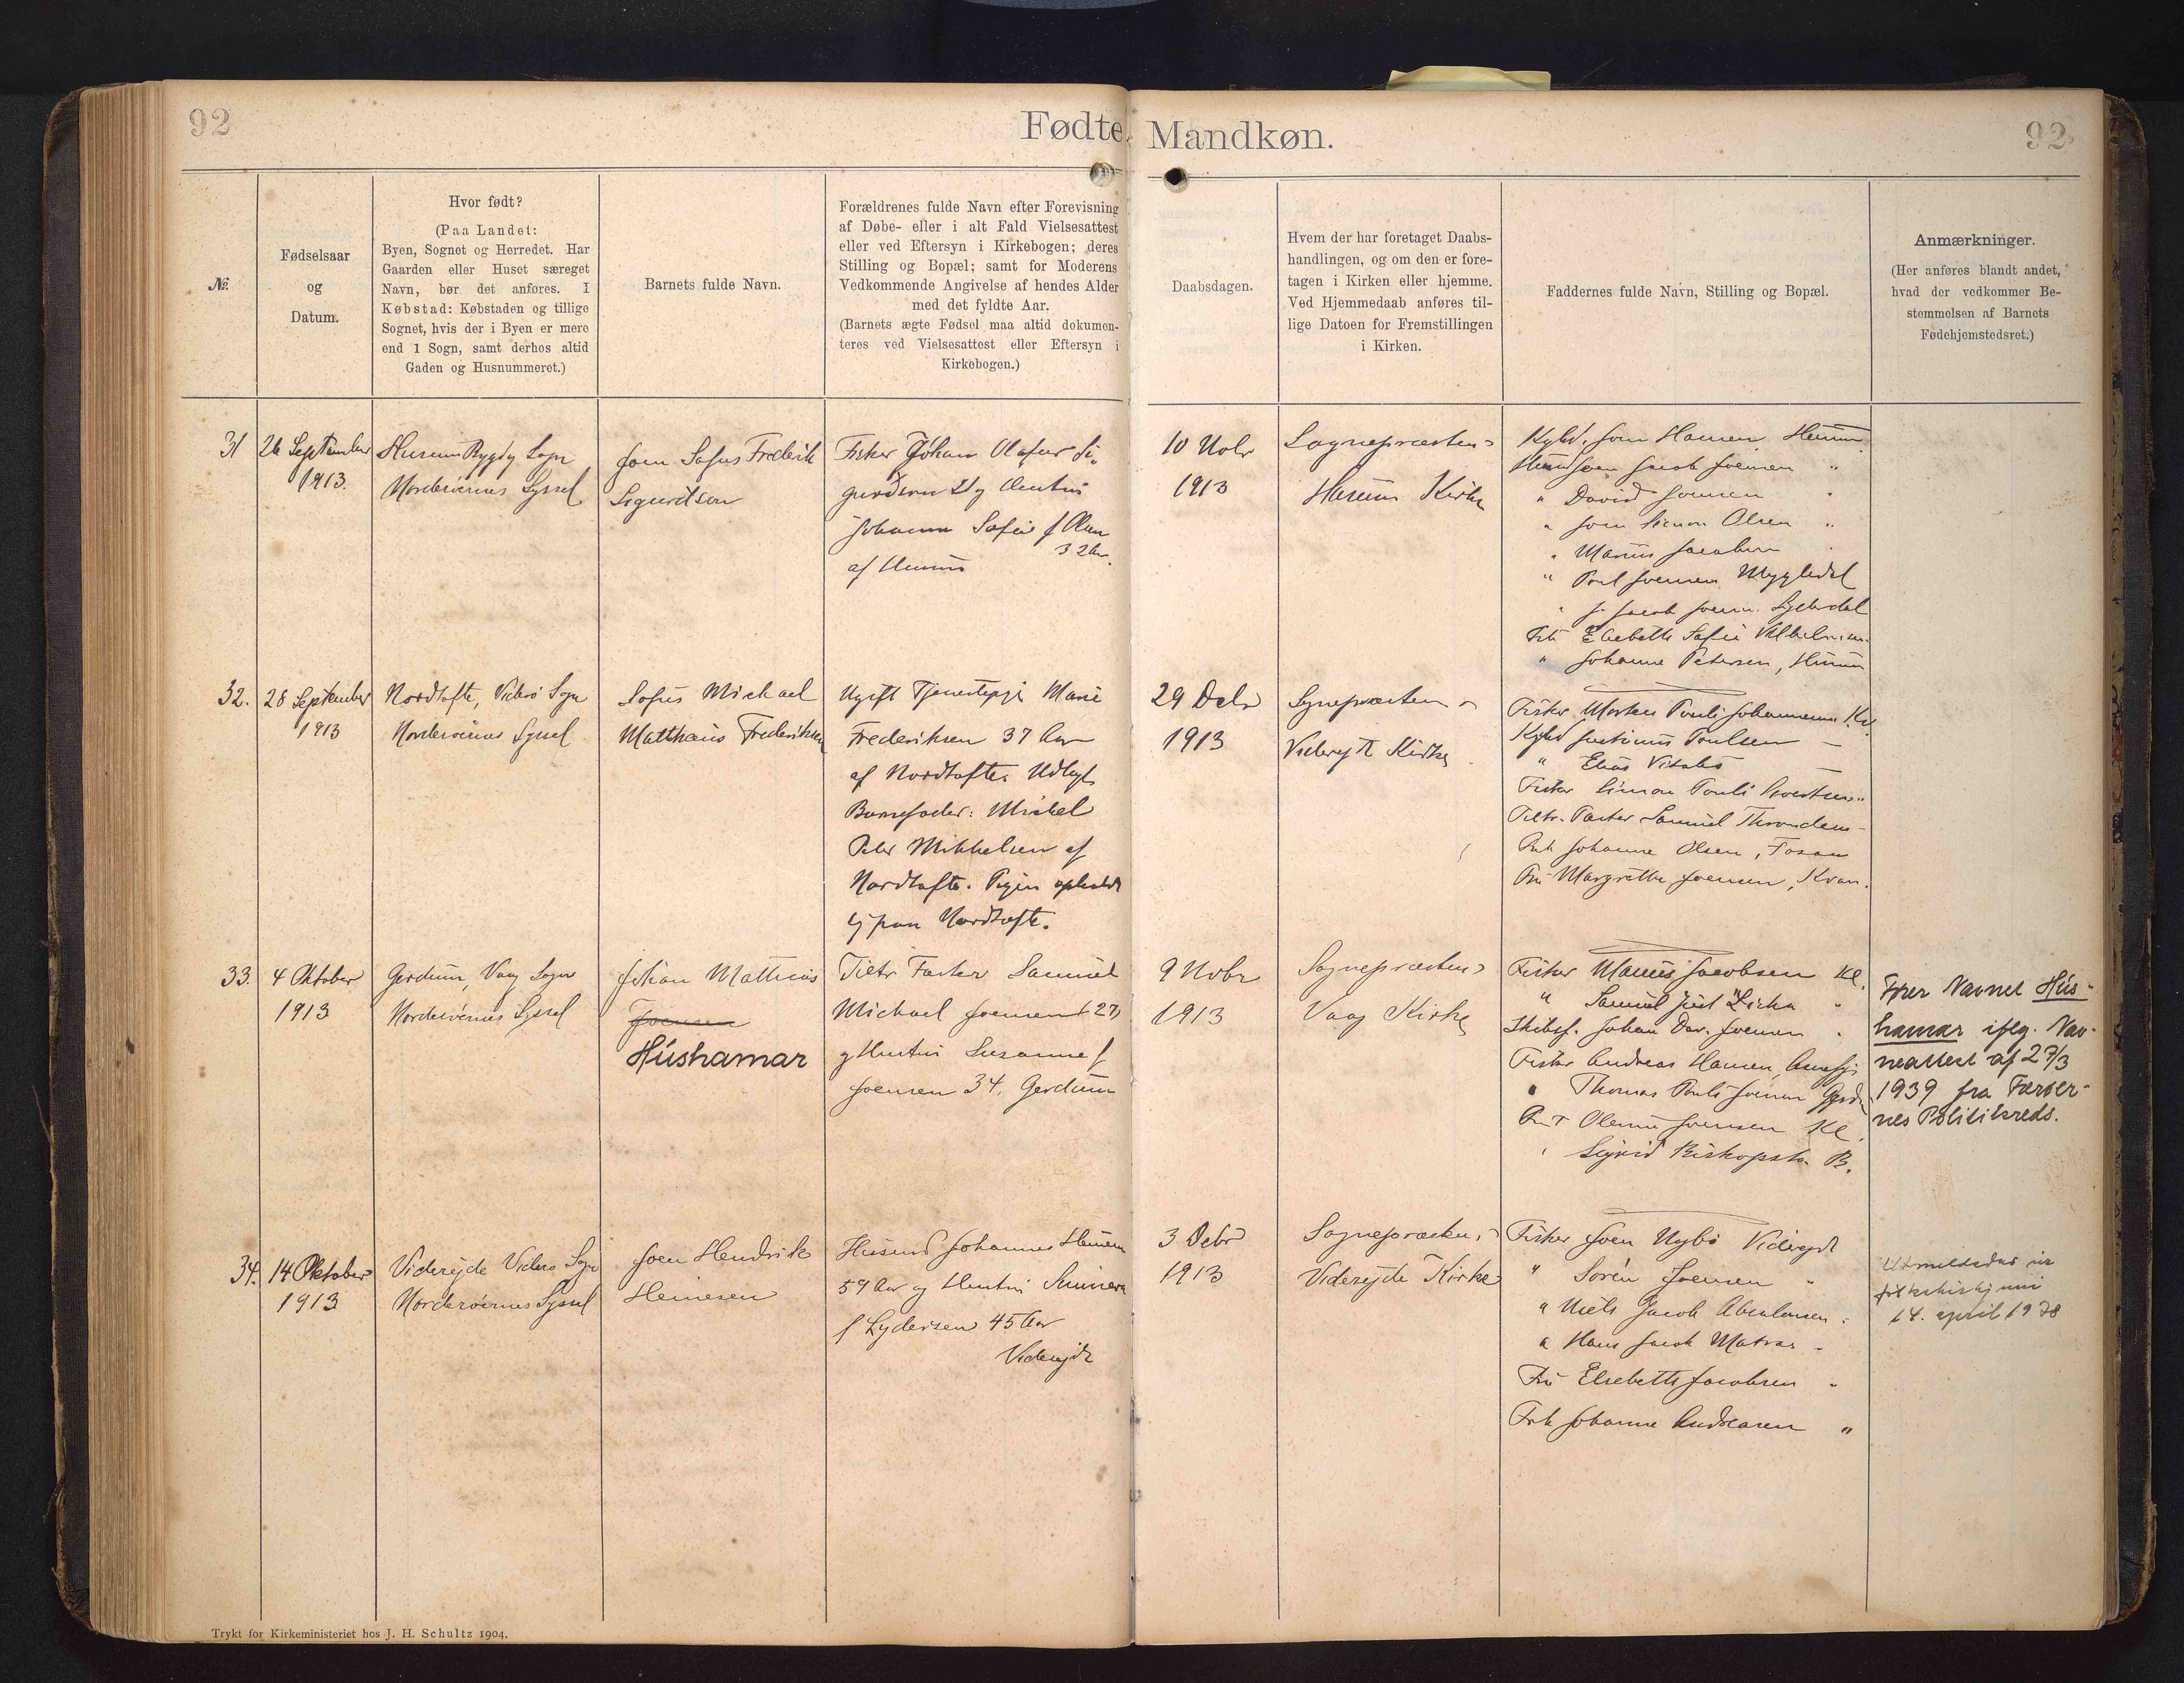 92
Fødte, Mandkøn.
92
№.
Fødselsaar
og
Datum.
Hvor født?
(Paa Landet:
Byen, Sognet og Herredet. Har
Gaarden eller Huset særeget
Navn, bør det anføres. I
Købstad: Købstaden og tillige
Sognet, hvis der i Byen er mere
end 1 Sogn, samt derhos altid
Gaden og Husnummeret.)
Barnets fulde Navn.
Forældrenes fulde Navn efter Forevisning
af Døbe- eller i alt Fald Vielsesattest
eller ved Eftersyn i Kirkebogen; deres
Stilling og Bopæl; samt for Moderens
Vedkommende Angivelse af hendes Alder
med det fyldte Aar.
(Barnets ægte Fødsel maa altid dokumen-
teres ved Vielsesattest eller Eftersyn i
Kirkebogen.)
Daabsdagen.
Hvem der har foretaget Daabs-
handlingen, og om den er fore-
tagen i Kirken eller hjemme.
Ved Hjemmedaab anføres til-
lige Datoen for Fremstillingen
i Kirken.
Faddernes fulde Navn, Stilling og Bopæl.
Anmærkninger.
(Her anføres blandt andet,
hvad der vedkommer Be-
stemmelsen af Barnets
Fødehjemstedsret.)
31
26 September
1913.
Husum Sogn
Norderøernes Syssel
Joen Sofus Frederik
Sigurdson
Fisker Jóhan Olafur Si-
gurdson og Hustru
Johanne Sofie f Olsen
32 Aar.
af Husum
10 Nobr
1913
Sognepræsten
Husum Kirke
Joen Hansen Husum
Jacob Joensen "
" David Joensen "
" Joen Simon Olsen "
" Marius Jacobsen "
" Poul Joensen Mygledal
" J. Jacob Joensen Syderdal
Elsebeth Sofie Vilhelm
" Johanne Petersen, Husum
32.
28 September
1913
Nordtofte, Viderø Sogn
Norderøernes Syssel
Sofus Michael
Matthæus Frederiksen
Ugift Tjenestepige Marie
Frederiksen 37 Aar
af Nordtofte. Udlagt
Barnefader: Mickel
Peter Mikkelsen af
Nordtofte. Pigen opholdt
sig paa Nordtofte.
29
1913
Sognepræsten
Viderejde Kirke
Fisker Morten Pouli Johannesen
Justinus Poulsen —
" Elias Vitalis —
Fisker Simon Pouli "
Tiltr. Fæster Samuel Throndsen —
Frk Johanne Olsen,
Fru Margrethe Joensen, Kvan.
33.
4 Oktober
1913
Gerdum, Vaag Sogn
Norderøernes Syssel
Johan Matthias
Joensen
Húshamar
Tiltr Fæster Samuel
Michael Joensen (27)
og Hustru Susanne f
Joensen 34, Gerdum
9 Nobr
1913
Sognepræsten
Vaag Kirke
Fisker Marius Jacobsen Kl.
" Samuel Just "
Skibsf. Johan Dav. Joensen "
Fisker Andreas Hansen
" Thomas Pouli Joensen
Olevine Joensen Kl.
" Sigrid Biskopstø B.
Fører Navnet Hús-
hamar iflg. Nav-
neattest af 27/3
1939 fra Færøer-
nes Politikreds.
34.
14 Oktober
1913
Viderejde Viderø Sogn
Norderøernes Syssel
Joen Hendrik
Heinesen
Johannes Heinesen
59 Aar og Hustru Sunneva
f Lydersen 45 Aar
Viderejde
3 Debr
1913
Sognepræsten
Viderejde Kirke
Fisker Joen Nybø Viderejde
" Soren Joensen "
" Niels Jacob Absalonsen "
" Hans Jacob Matras "
Fru Elsebeth Jacobsen "
Frk Johanne Andreasen "
Útmeldaður úr
fólkakirkjuni
14. april 1978
Trykt for Kirkeministeriet hos J. H. Schultz 1904.